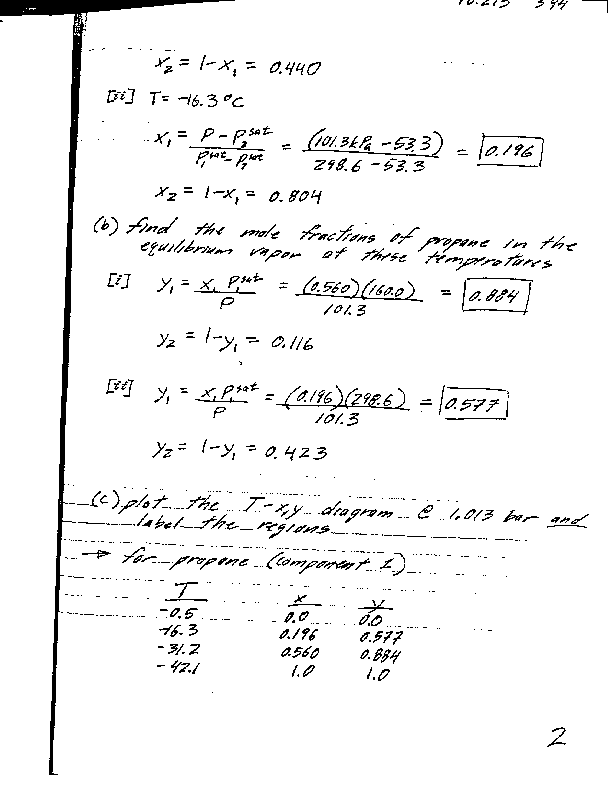 10.213 344
x₂ = 1-x₁ = 0.440
[ii] T= -16.3°C
x₁ = P-P₂ˢᵃᵗ / P₁ˢᵃᵗ-P₂ˢᵃᵗ = (101.3kPa-53.3) / 298.6-53.3 = 0.196
x₂ = 1-x₁ = 0.804
(b) find the mole fractions of propane in the
equilibrium vapor at these temperatures
[i] y₁ = x₁ P₁ˢᵃᵗ / P = (0.560)(160.0) / 101.3 = 0.884
y₂ = 1-y₁ = 0.116
[ii] y₁ = x₁P₁ˢᵃᵗ / P = (0.196)(298.6) / 101.3 = 0.577
y₂ = 1-y₁ = 0.423
(c) plot the T-x,y diagram @ 1.013 bar and
label the regions
→ for propane (component 1)
T x y
-0.5 0.0 0.0
-16.3 0.196 0.577
-31.2 0.560 0.884
-42.1 1.0 1.0
2